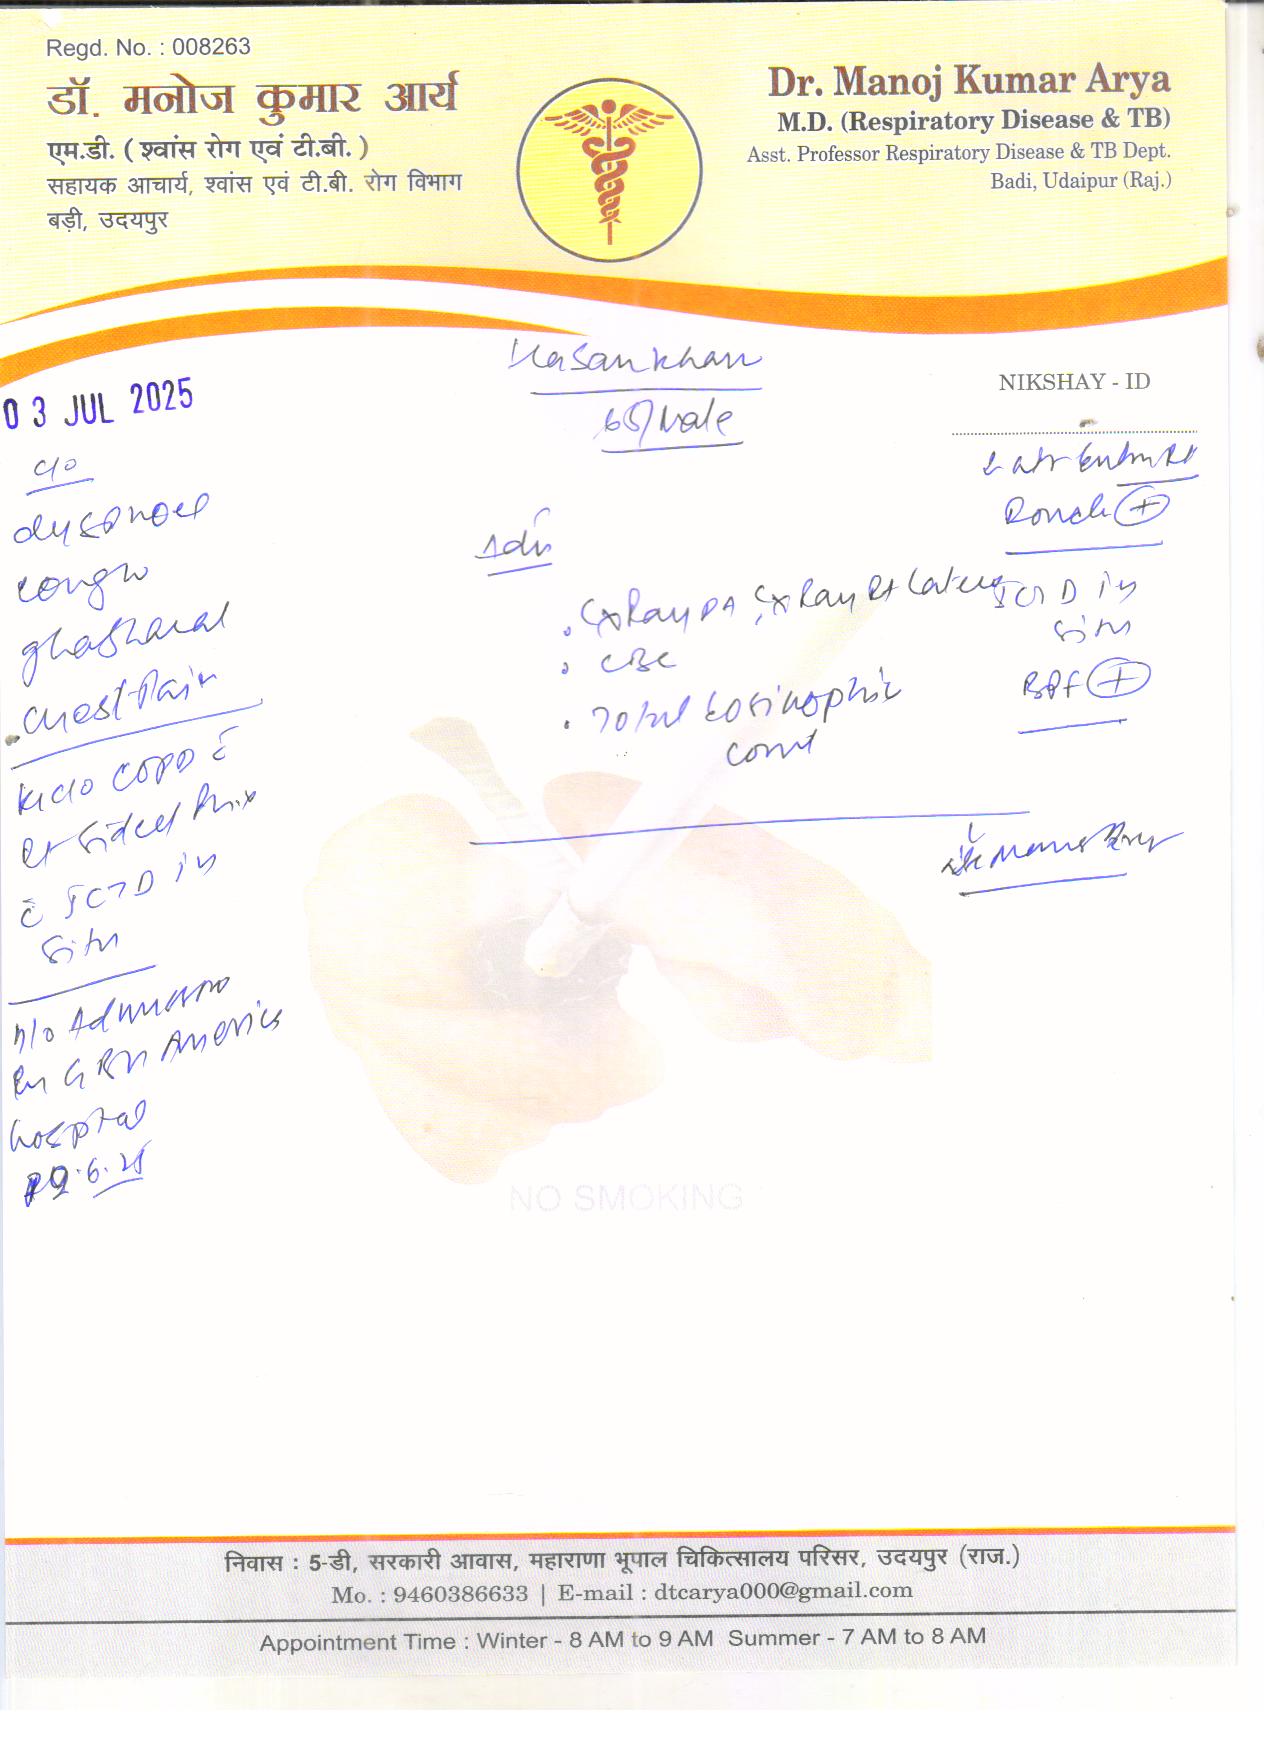 Regd. No. : 008263
डॉ. मनोज कुमार आर्य
एम.डी. ( श्वांस रोग एवं टी.बी. )
सहायक आचार्य, श्वांस एवं टी.बी. रोग विभाग
बड़ी, उदयपुर
Dr. Manoj Kumar Arya
M.D. (Respiratory Disease & TB)
Asst. Professor Respiratory Disease & TB Dept.
Badi, Udaipur (Raj.)
Hasan khan
65/Male
NIKSHAY - ID
03 JUL 2025
c/o
dyspnoea
cough
ghabharat
chest Pain
K/c/o COPD c̄
Rt sided
c̄ ICTD in
situ
h/o Admission
in GBH America
hospital
19.6.25
Adv
. CxRay PA, CxRay Rt Lateral
. CBC
. Total Eosinophilic
count
Ronchi +
ICTD in
situ
BPF +
NO SMOKING
निवास : 5-डी, सरकारी आवास, महाराणा भूपाल चिकित्सालय परिसर, उदयपुर (राज.)
Mo. : 9460386633 | E-mail : dtcarya000@gmail.com
Appointment Time : Winter - 8 AM to 9 AM Summer - 7 AM to 8 AM